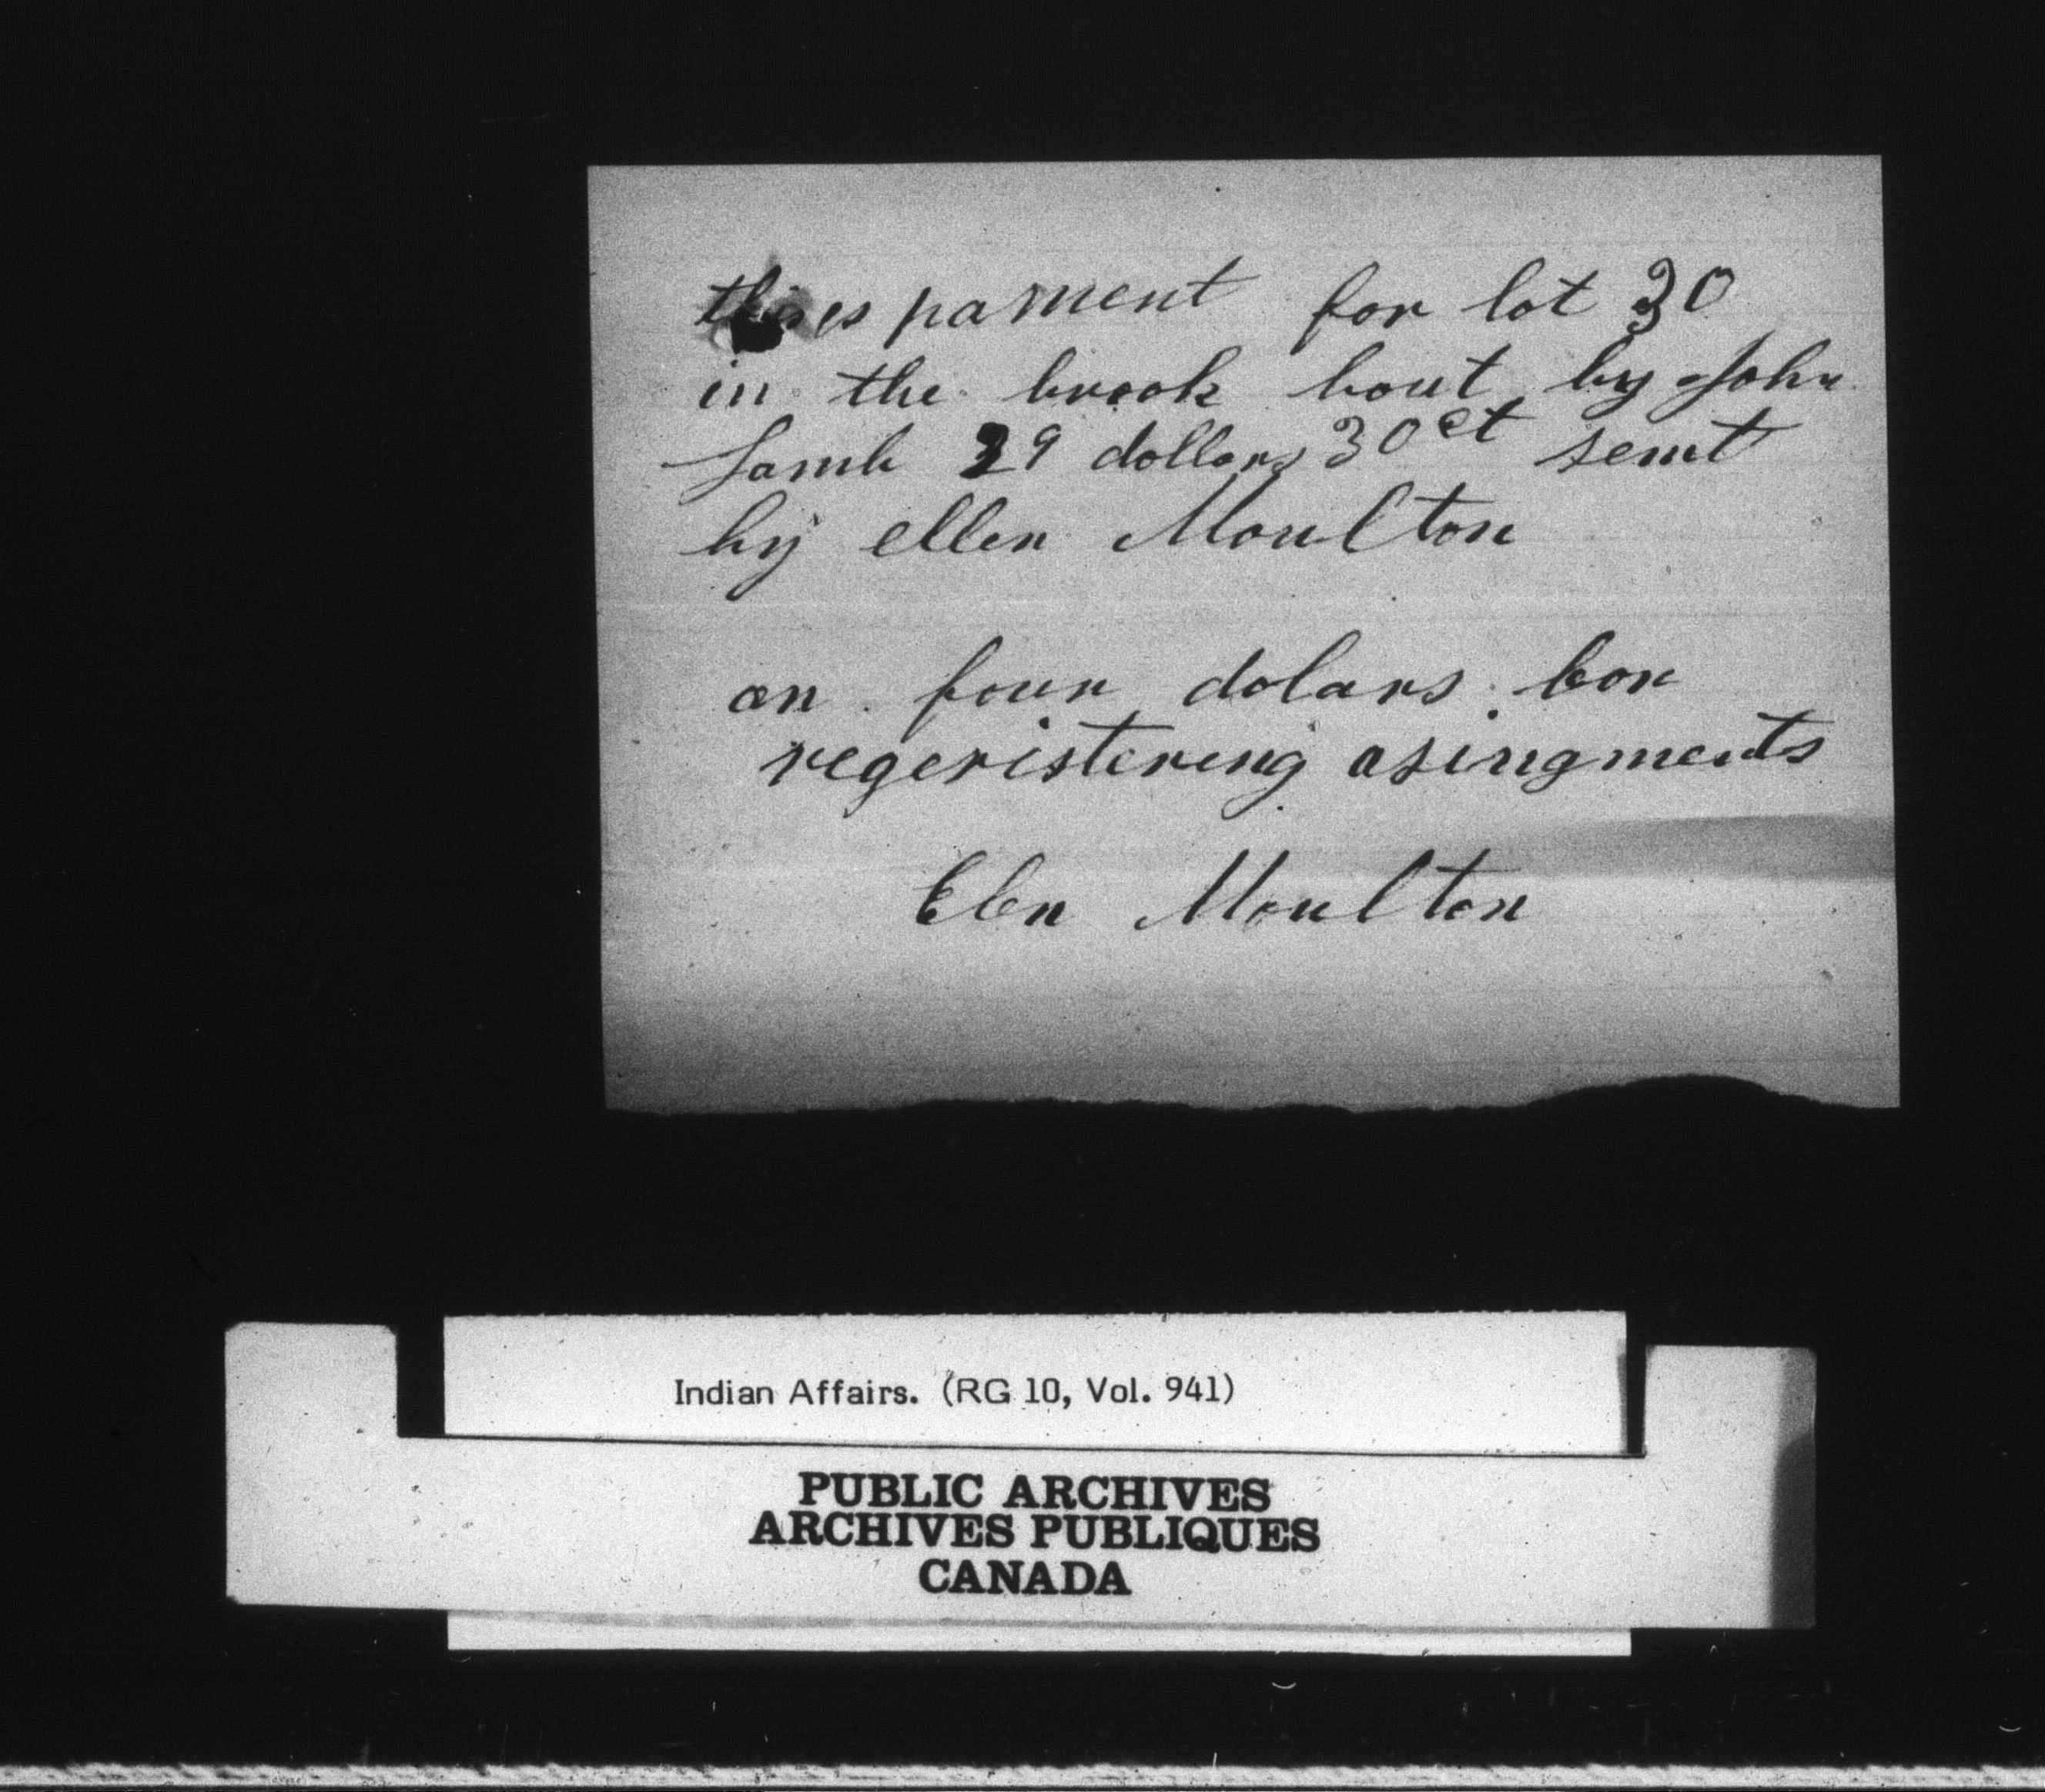 this es pament for lot 30
in the brook bout by John
Lamb 39 dollars 30 ct semt
by ellen Moulton
an four dolars for
regeristering asingments
Elen Moulton
Indian Affairs. (RG 10, Vol. 941)
PUBLIC ARCHIVES
ARCHIVES PUBLIQUES
CANADA